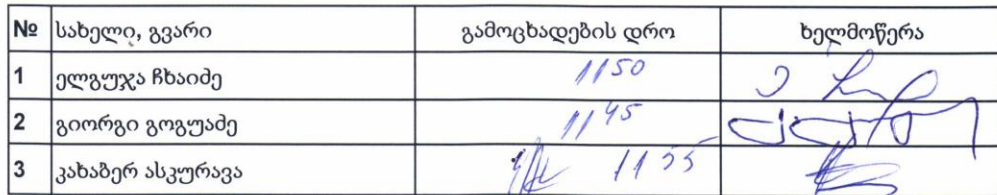 № სახელი, გვარი გამოცხადების დრო ხელმოწერა
1 ელგუჯა ჩხაიძე 1150
2 გიორგი გოგუაძე 1145
3 კახაბერ ასკურავა 1155